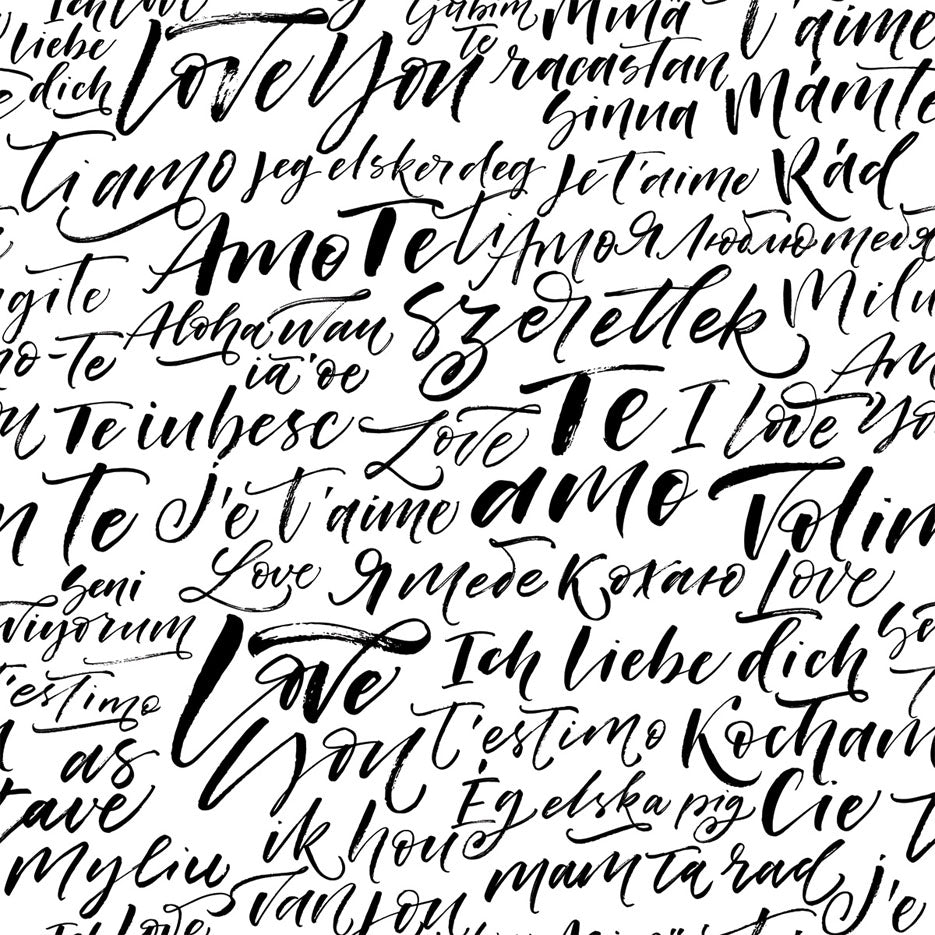 liebe
dich
Love You
Te
racastan
sinna
Mámte
Ti amo
Jeg elsker deg
Je t'aime
Rád
Amo Te
Ti Amo
Я люблю тебя
Aloha wau
iā 'oe
szeretlek
no-Te
Te iubesc
Love
Te
amo
I love
n Te
J'e t'aime
Volim
Love
Я тебе Кохаю
Love
seni
t'estimo
Love
you
Ich liebe dich
t'estimo
Kocham
Cie
as
tave
myliu
Ég elska þig
ik hou
van jou
mam ta rad
j'e